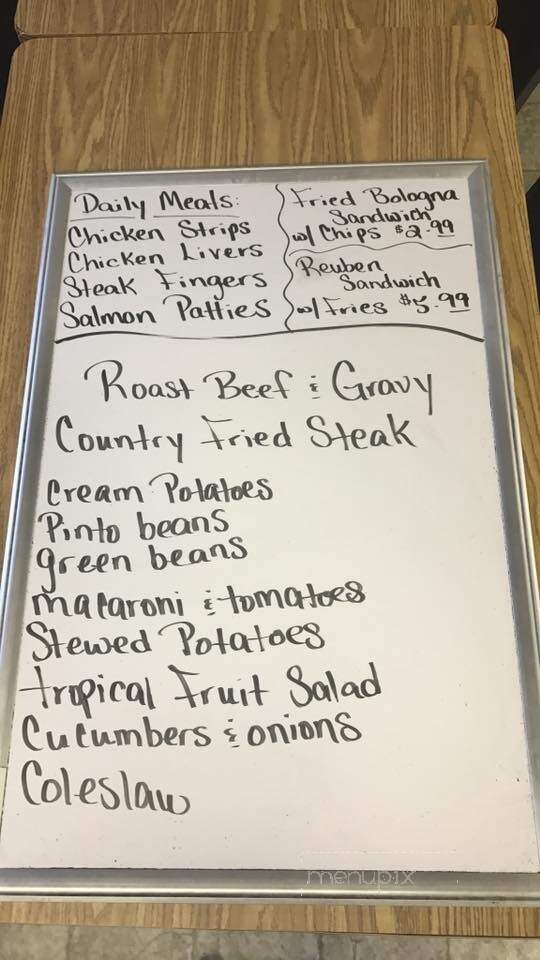 Daily Meals:
Chicken Strips
Chicken Livers
Steak Fingers
Salmon Patties
Fried Bologna
Sandwich
w/ Chips $2.99
Reuben
Sandwich
w/ Fries $5.99
Roast Beef & Gravy
Country Fried Steak
Cream Potatoes
Pinto beans
green beans
macaroni & tomatoes
Stewed Potatoes
tropical Fruit Salad
Cucumbers & onions
Coleslaw
menupix